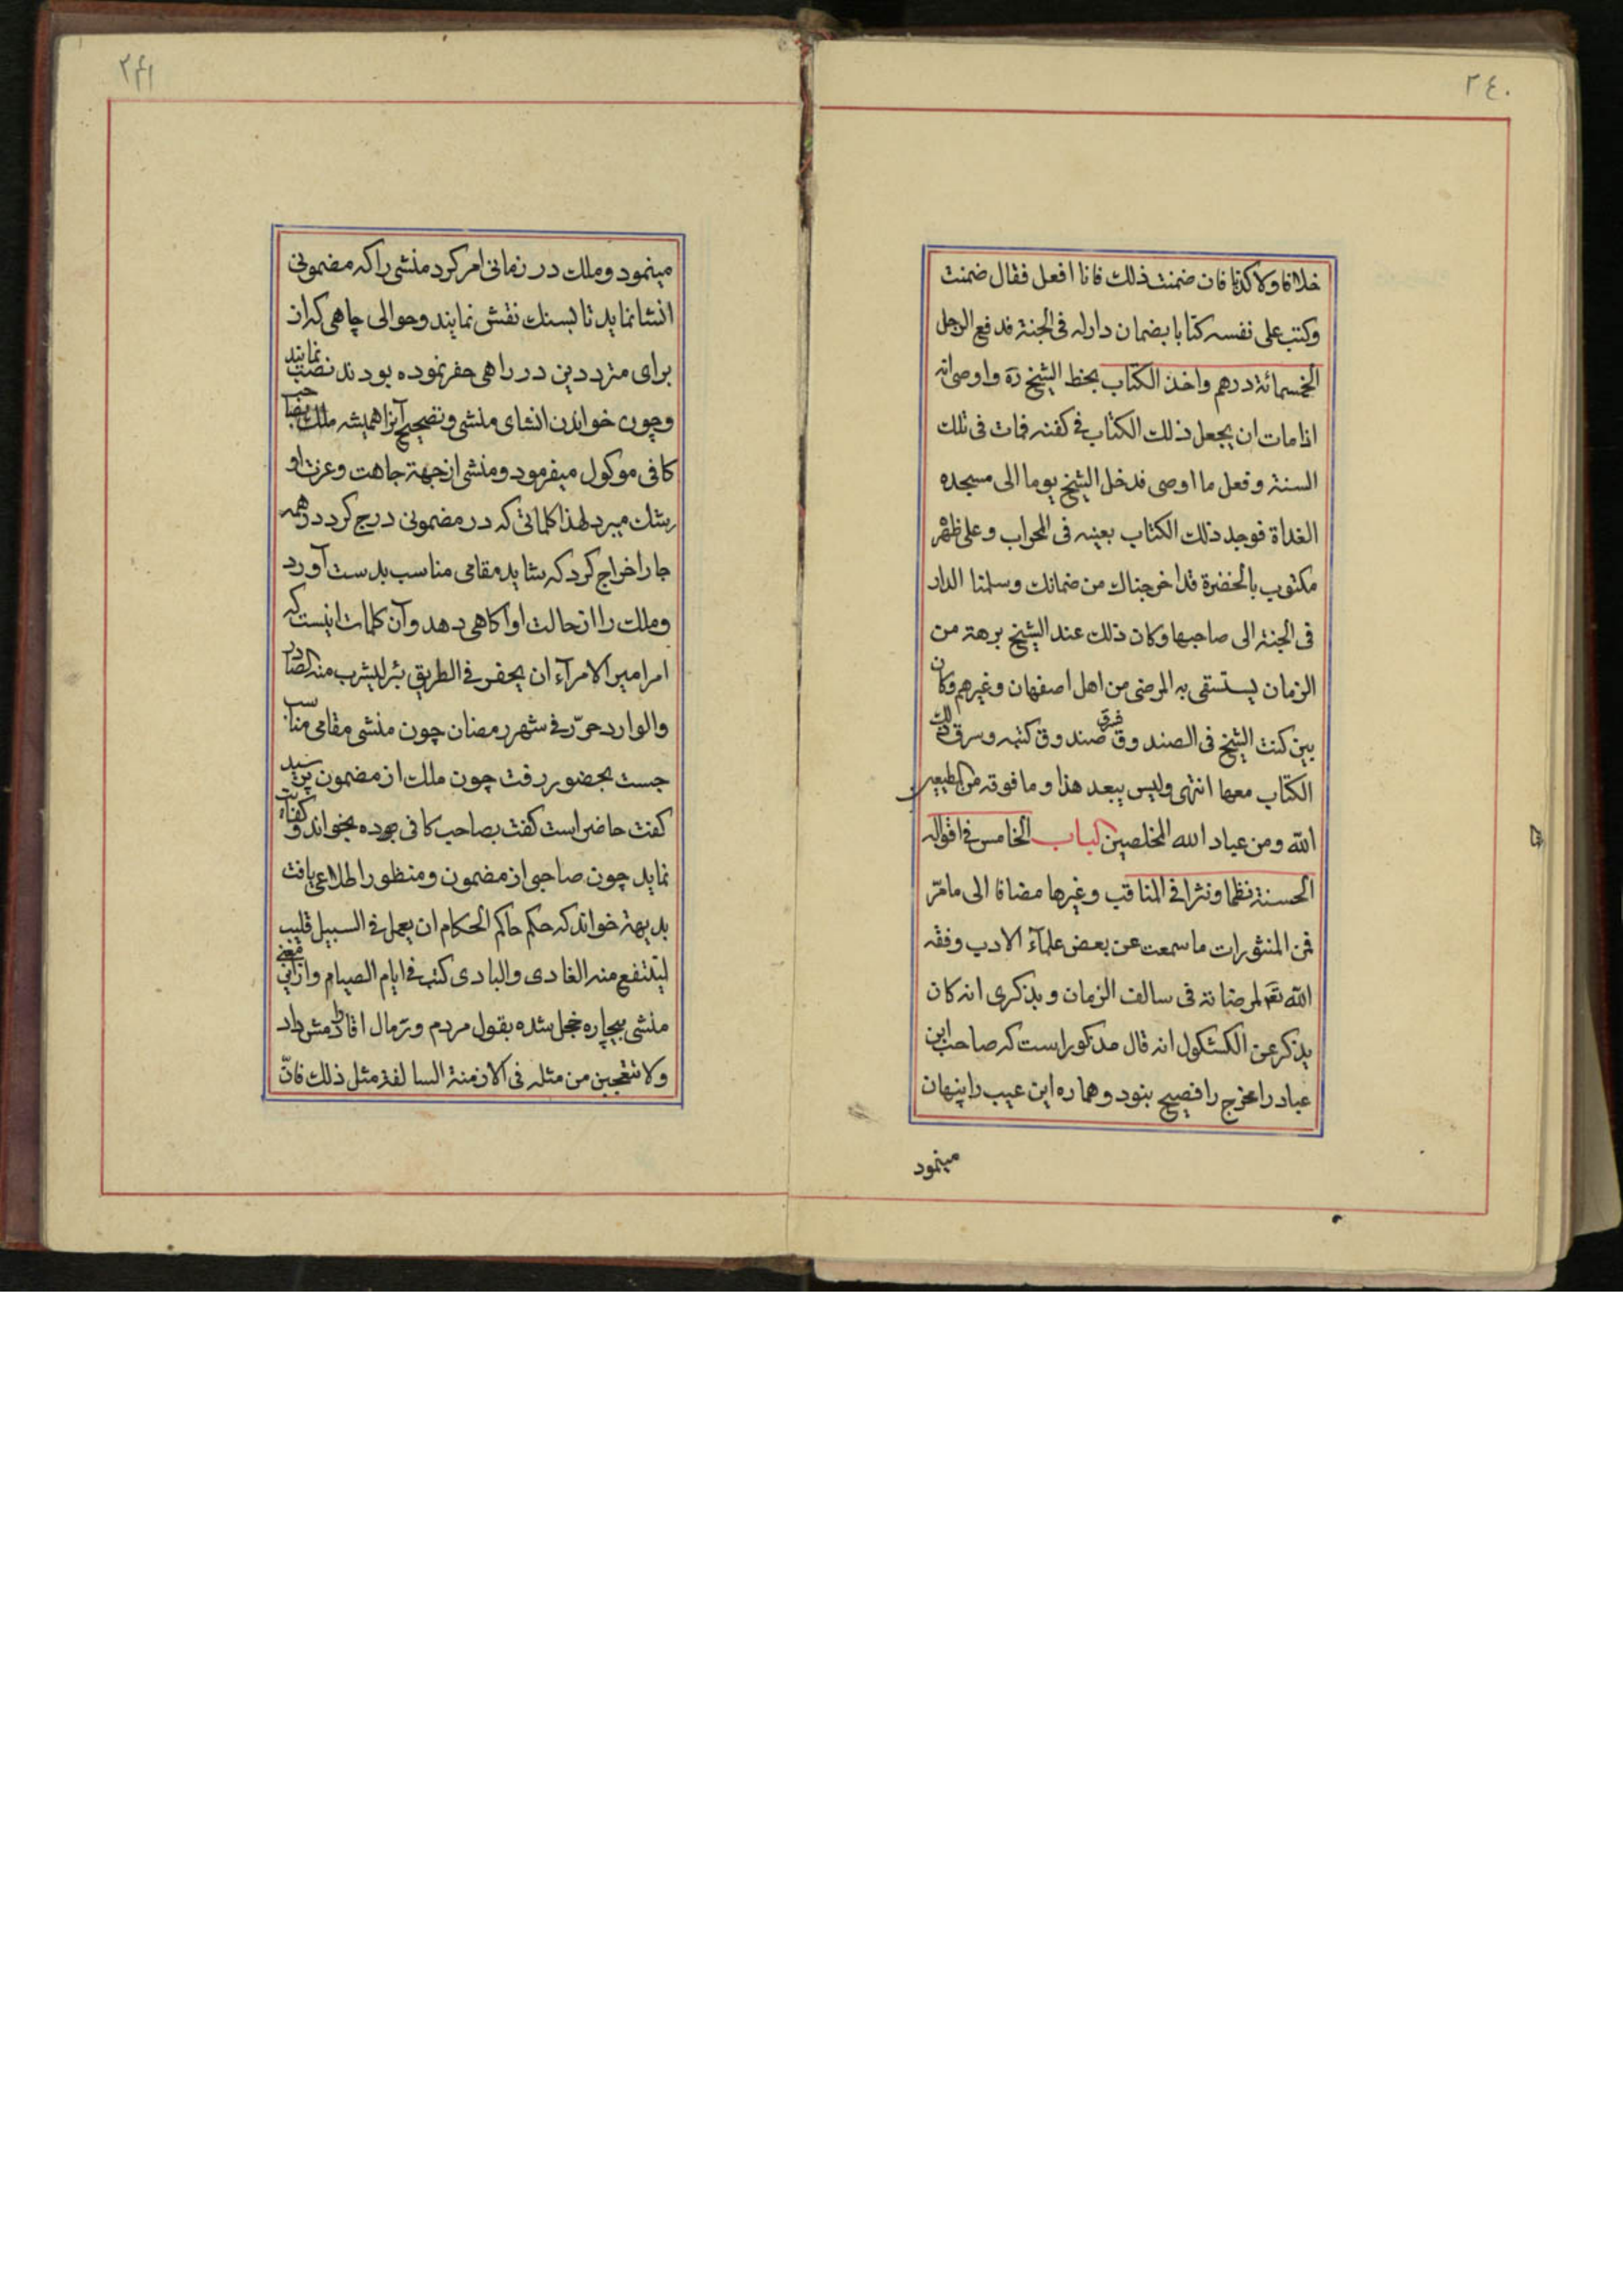 ٢٤٠
خلافا ولا كذبا فان ضمنت ذلك فانا افعل فقال ضمنت
وكتب على نفسه كتابا بضمان دار له فى الجنة فدفع الرجل
الخمسمائة درهم واخذ الكتاب بخط الشيخ ره واوصى انه
اذا مات ان يجعل ذلك الكتاب فى كفنه فمات فى تلك
السنة وفعل ما اوصى فدخل الشيخ يوما الى مسجده
الغداة فوجد ذلك الكتاب بعينه فى المحراب وعلى ظهره
مكتوب بالخضرة قد اخرجناك من ضمانك وسلمنا الدار
فى الجنة الى صاحبها وكان ذلك عند الشيخ برهة من
الزمان يستسقى به المرضى من اهل اصفهان وغيرهم وكان
بين كتب الشيخ فى الصندوق فسرق صندوق كتبه وسرق ذلك
الكتاب معها انتهى وليس ببعد هذا وما فوقه من
الله ومن عباد الله المخلصين الباب الخامس فى اقواله
الحسنة نظما ونثرا فى المناقب وغيرها مضافا الى مامرّ
فمن المنثورات ما سمعت عن بعض علمآء الادب وفقه
الله تعم لمرضاته فى سالف الزمان ويذكرى انه كان
يذكر عن الكشكول انه قال مذكور است كه صاحب ابن
عباد را مخرج را فصيح بنود وهماره اين عيب را پنهان
مينمود
٢٤١
مينمود وملك در زمانى امر كرد منشى را كه مضمونى
انشا نمايد تا بسنك نقش نمايند وحوالى چاهى كه از
براى مترددين در راهى حفر نموده بودند نصب نمايند
وچون خواندن انشاى منشى وتصحيح آنرا هميشه ملك بصاحب
كافى موكول ميفرمود ومنشى از جهة جاهت وعزت او
رشك ميبرد لهذا كلماتى كه در مضمونى درج كرد در همه
جا را اخراج كرد كه شايد مقامى مناسب بدست آورد
وملك را از حالت او آكاهى دهد وآن كلمات اينست كه
امر امير الامرآء ان يحفر فى الطريق بئر ليشرب منه الصادر
والوارد حرّر فى شهر رمضان چون منشى مقامى مناسب
جست بحضور رفت چون ملك از مضمون پرسيد
كفت حاضر است كفت بصاحب كافى بخواند و
نمايد چون صاحب از مضمون ومنظور اطلاعى يافت
بديهة خواند كه حكم حاكم الحكام ان يعمل فى السبيل قليب
لينتفع منه الغادى والبادى كتب فى ايام الصيام وازاين معنى
منشى بيچاره خجل شده بقول مردم ورمال اقا دمش داد
ولا تتعجبن من مثله فى الازمنة السالفة مثل ذلك فانّ